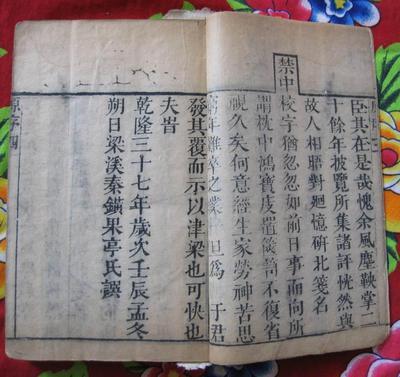 臣其在是哉愧余風塵鞅掌二
十餘年披覽所集諸評恍然與
故人相晤對迴憶硏北箋名
禁中校字猶忽忽如前日事而向所
謂枕中鴻寶庋置筴笥不復省
視久矣何意經生家勞神苦思
年難卒之業 旦爲 于君
發其覆而示以津梁也可快也
夫旹
乾隆三十七年歲次壬辰孟冬
朔日梁溪秦鐄果亭氏譔
原序四